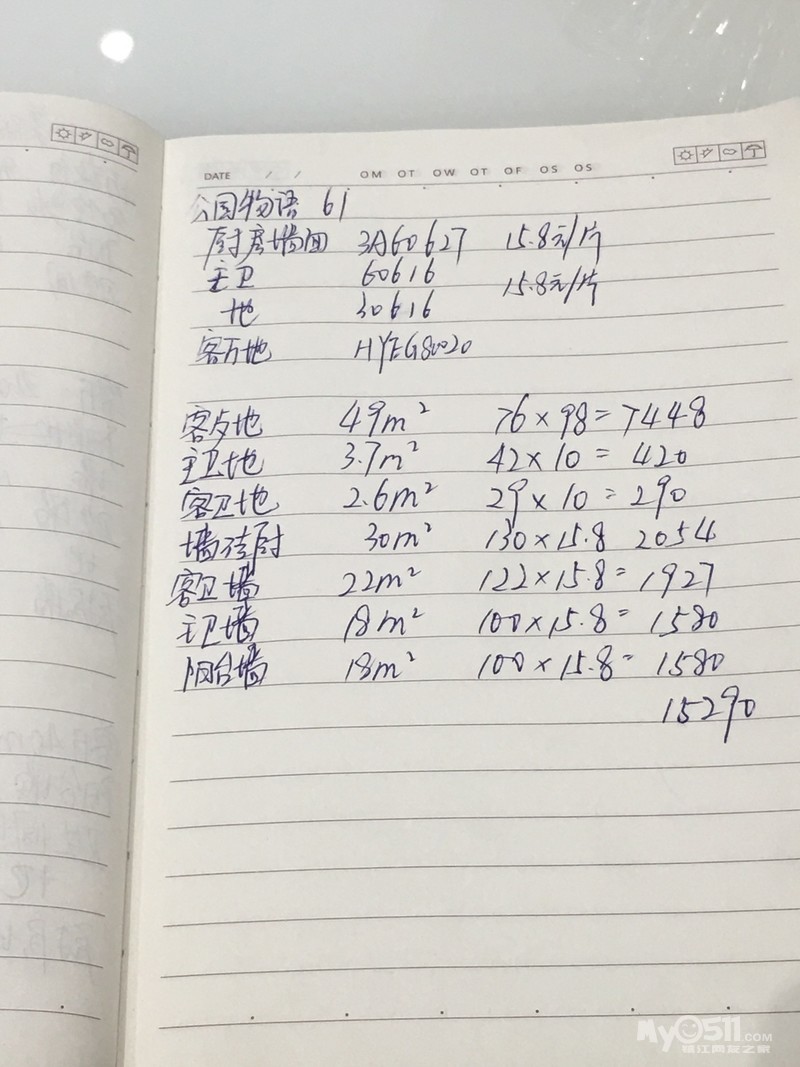 DATE / / OM OT OW OT OF OS OS
公园物语 61
厨房墙面 3A60627 15.8元/片
主卫 60616 15.8元/片
地 30616
客厅地 HYEG80020
客厅地 49m² 76×98=7448
主卫地 3.7m² 42×10=420
客卫地 2.6m² 29×10=290
墙 厨 30m² 130×15.8 2054
客卫墙 22m² 122×15.8=1927
主卫墙 18m² 100×15.8=1580
阳台墙 18m² 100×15.8=1580
15290
My0511.COM
镇江网友之家